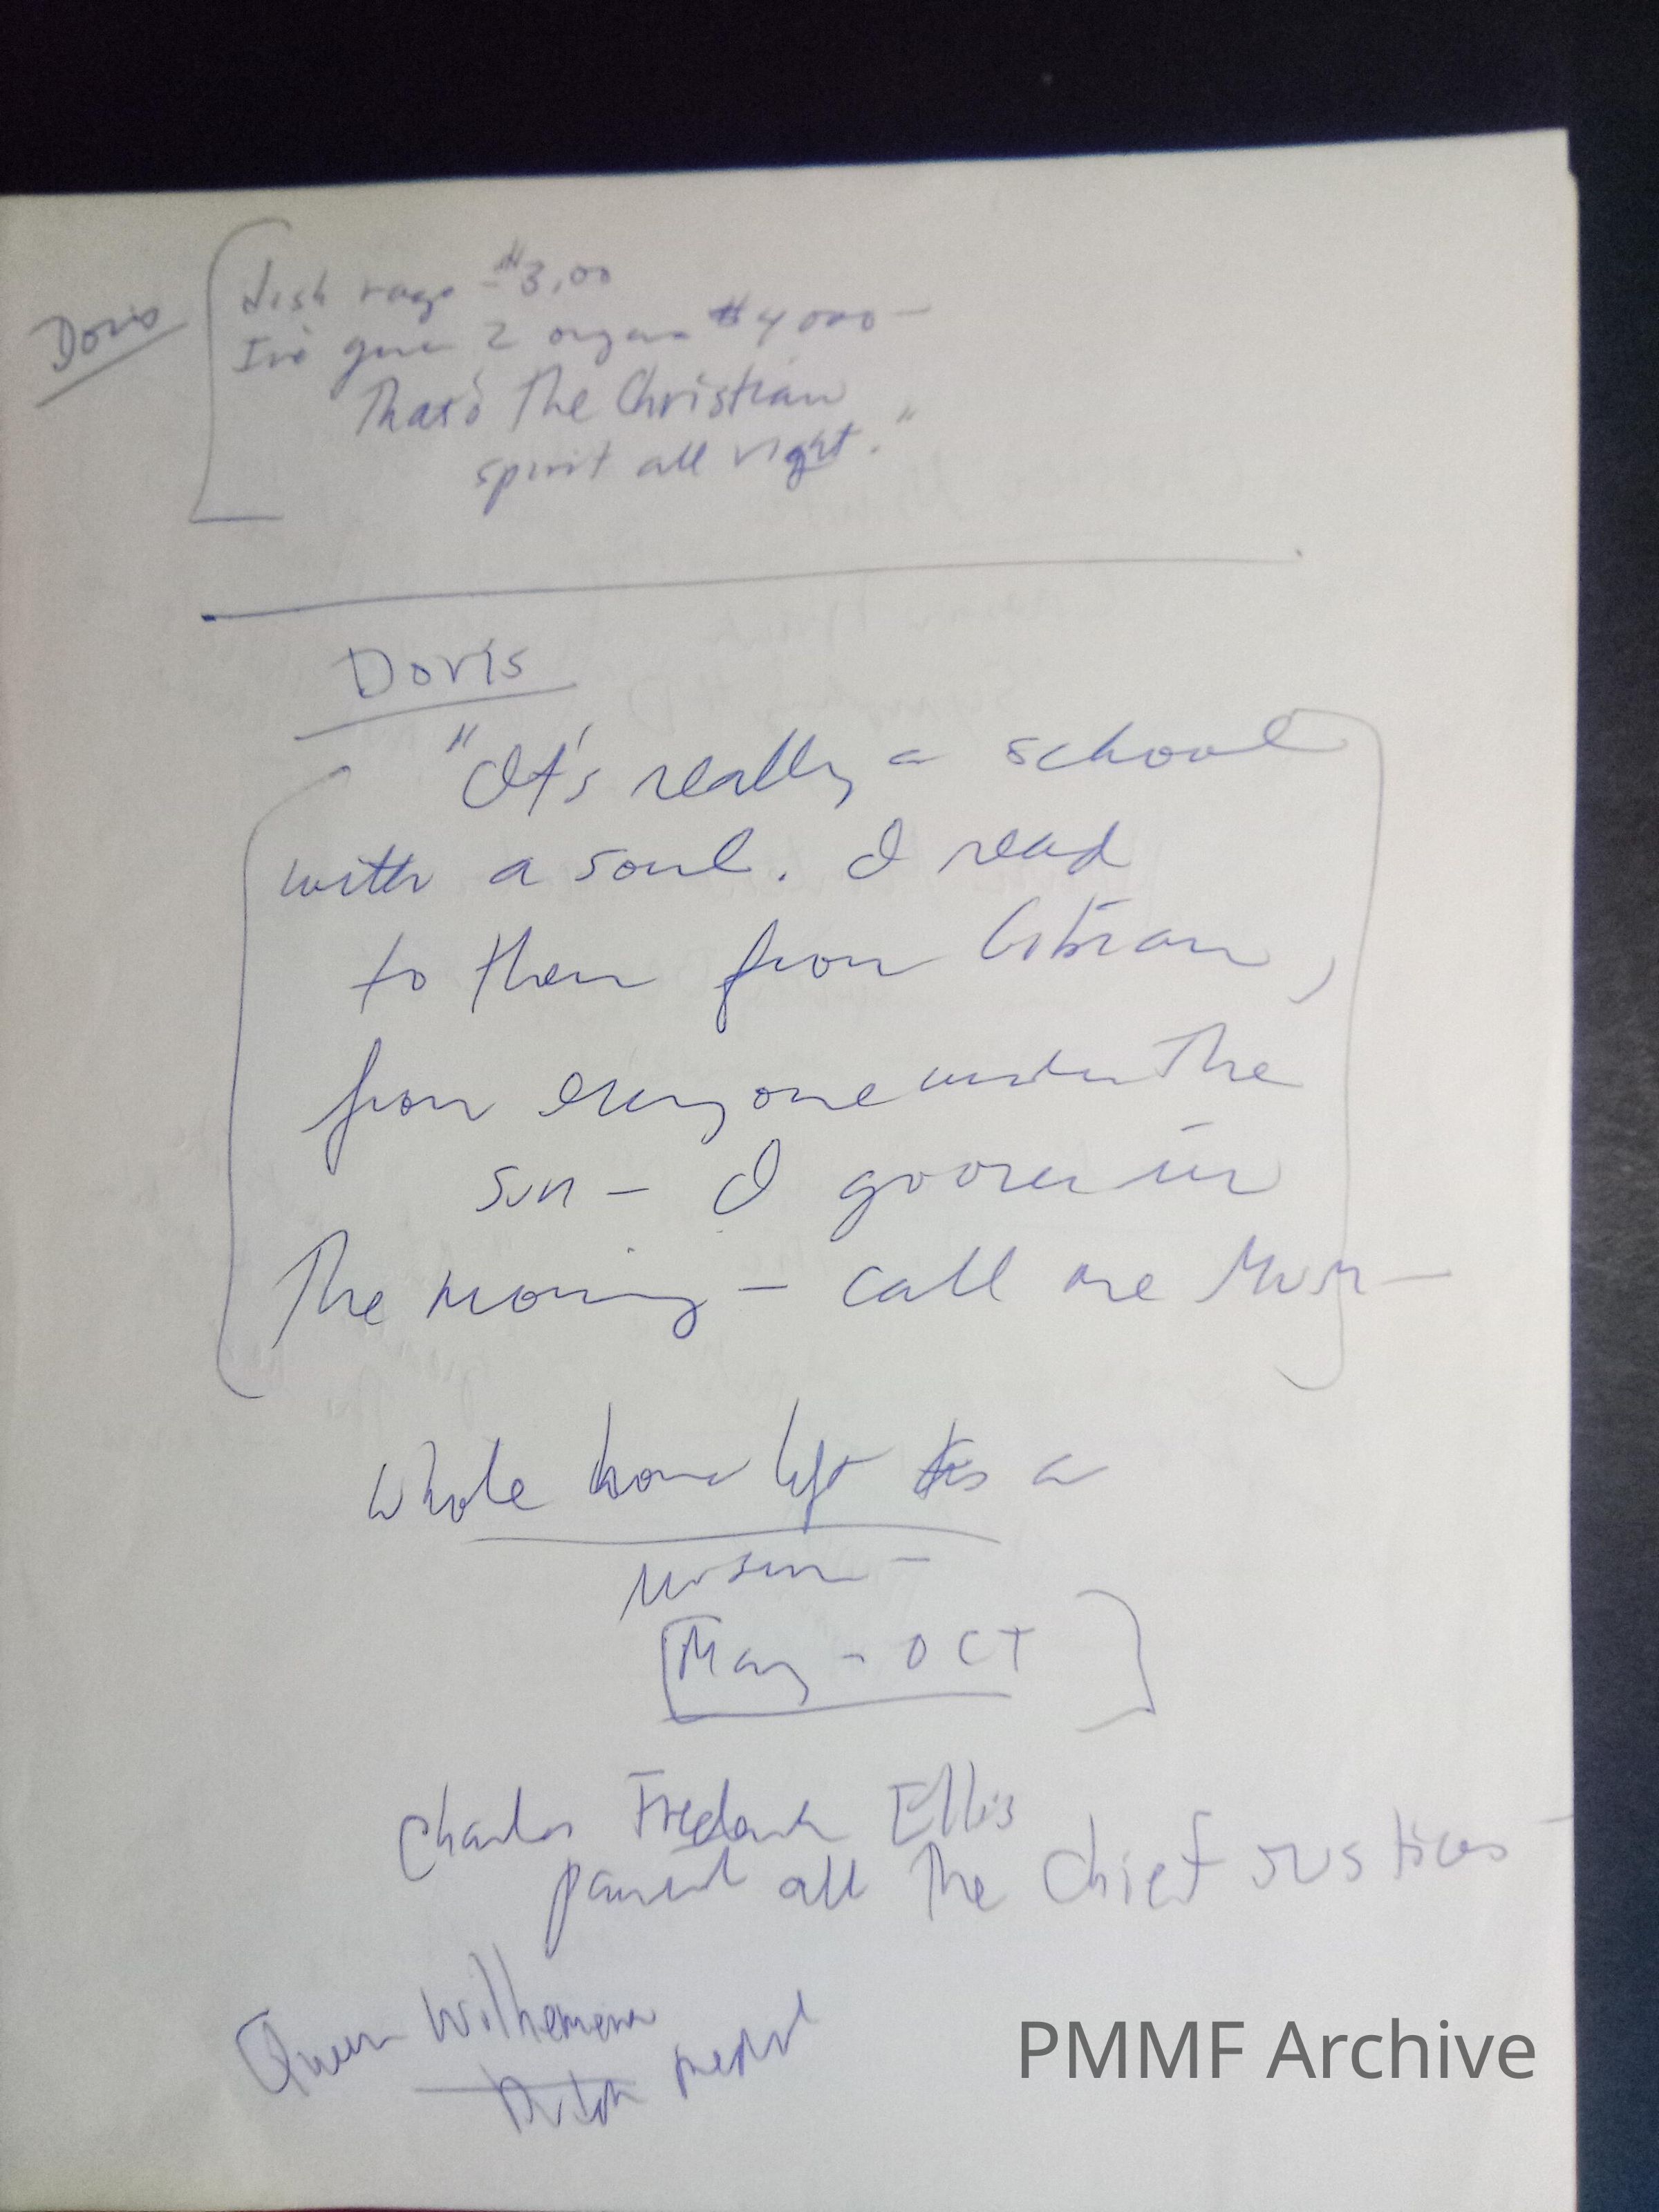 Doris
dish rags - $3.00
I've given 2 organs $4000 —
That's The Christian
spirit all right."
Doris
"It's really a school
with a soul. I read
to them from Gibran,
from everyone under The
sun — I go over in
The morning — call me Mum —
Whole home left as a
museum —
[May - OCT]
Charles Frederick Ellis
painted all The Chief Justices —
Queen Wilhemena
Dutch medal
PMMF Archive